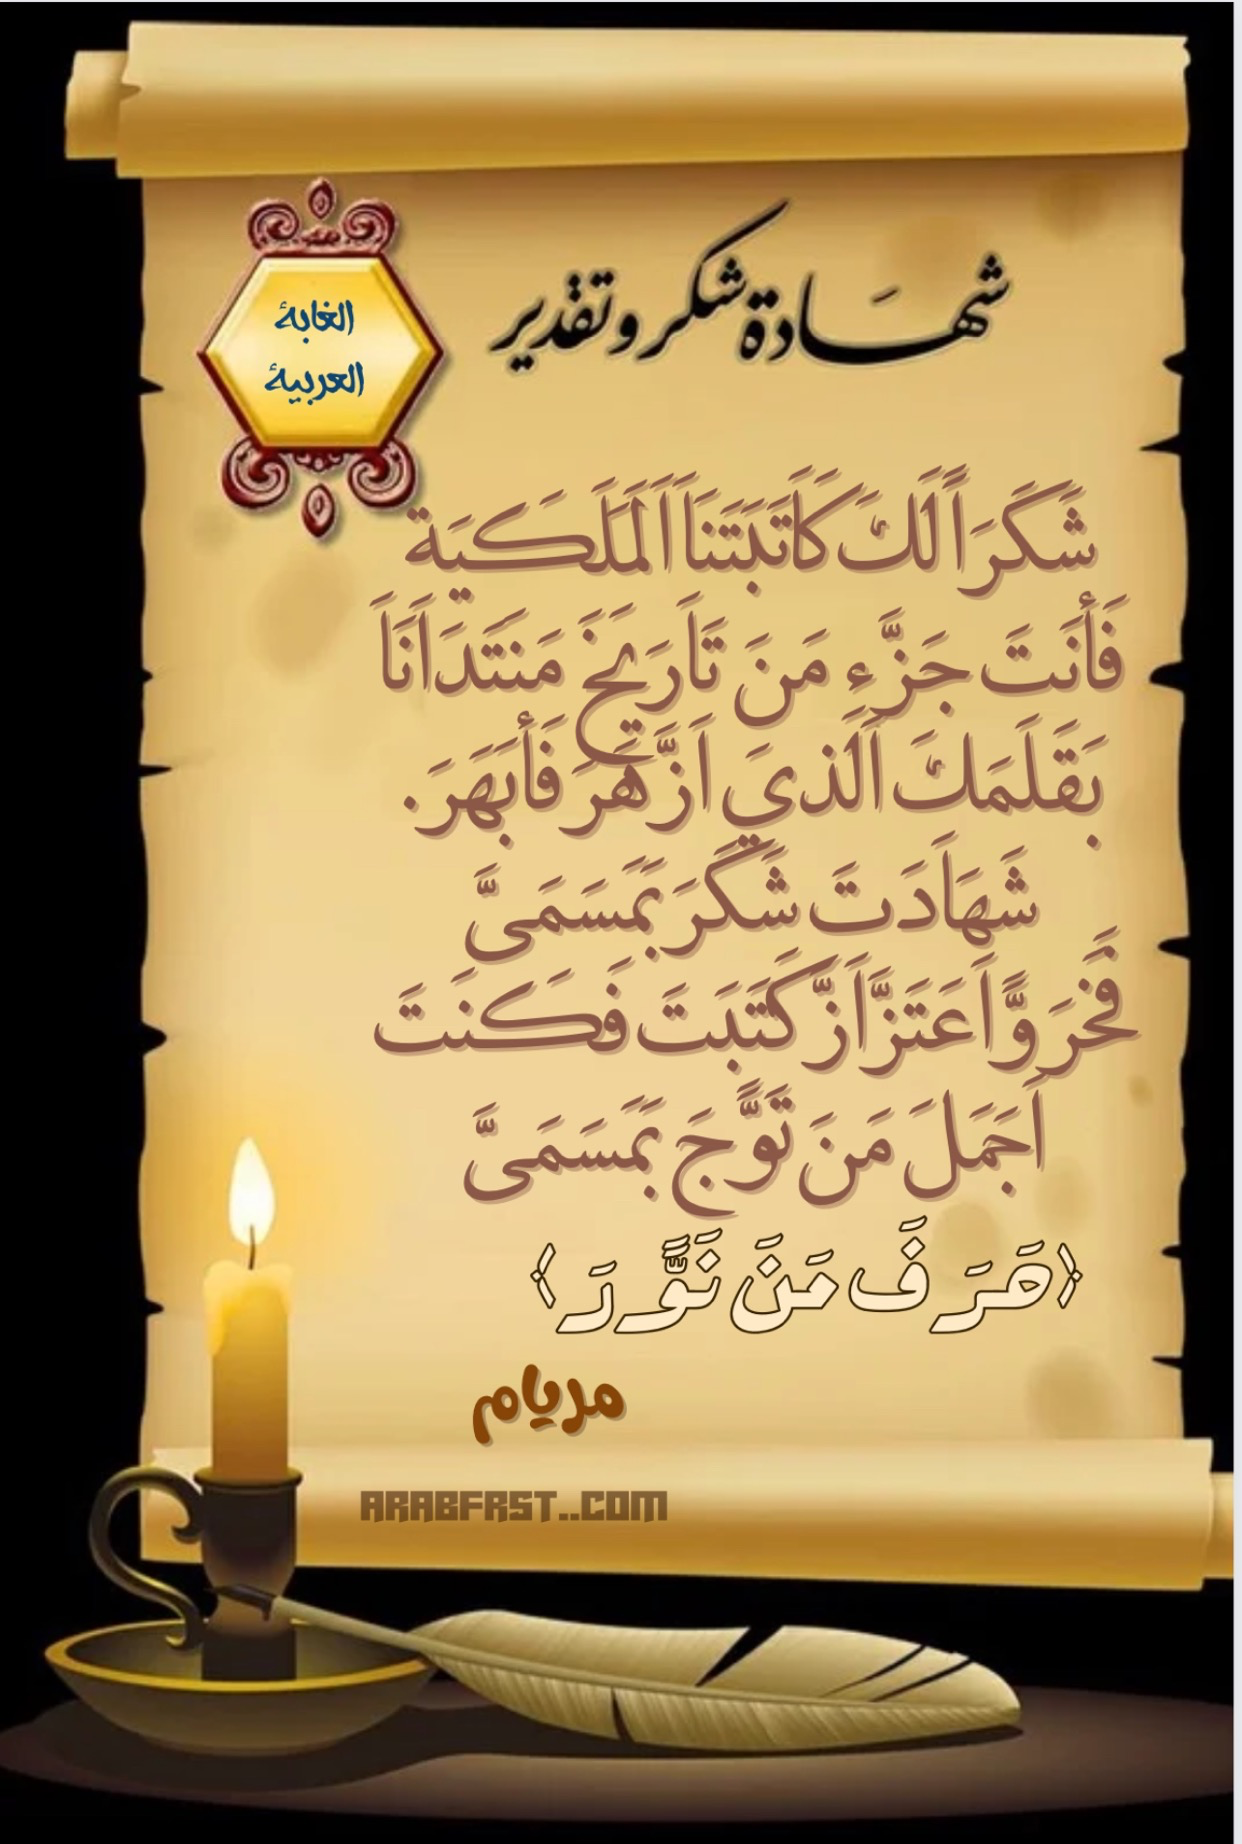 شهَادة شكر وتقدير
الغابة
العربية
شَكَرَاً لَكَ كَاَتَبَتَنَاَ اَلَمَلَكَيَة
فَأَنَتَ جَزَّءِ مَنَ تَاَرَيَخَ مَنَتَدَاَنَاَ
بَقَلَمَكَ اَلَذيَ اَزَّهَرَ فَأَبَهَرَ.
شَهَاَدَتَ شَكَرَ بَمَسَمَىَّ
فَخَرَ وَّاَعَتَزَّاَزَّ كَتَبَتَ فَكَنَتَ
اَجَمَلَ مَنَ تَوََّجَ بَمَسَمَىَّ
﴿حَرَفَ مَنَ نَوََّرَ﴾
مريام
ARABFRST..COM